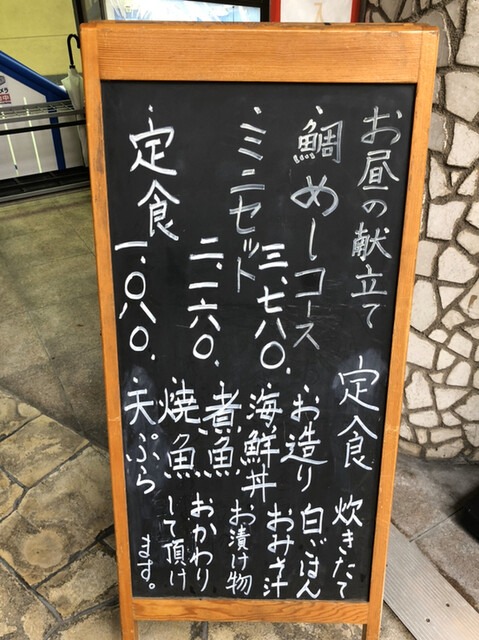 お昼の献立て
・鯛めしコース
三、七八〇.
・ミニセット
二、一六〇.
・定食
一、〇八〇.
定食
・お造り
・海鮮丼
・煮魚
・焼魚
・天ぷら
炊きたて
白ごはん
おみそ汁
お漬け物
おかわり
して頂け
ます。